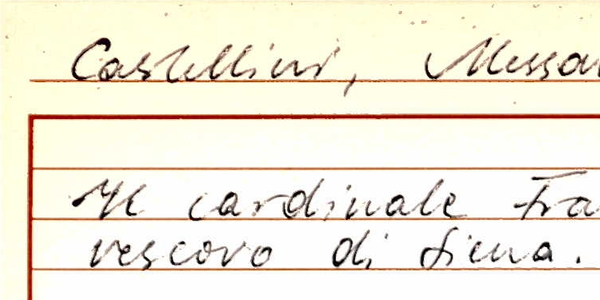 Castellini, Alessan
Il cardinale Fra
vescovo di Siena.